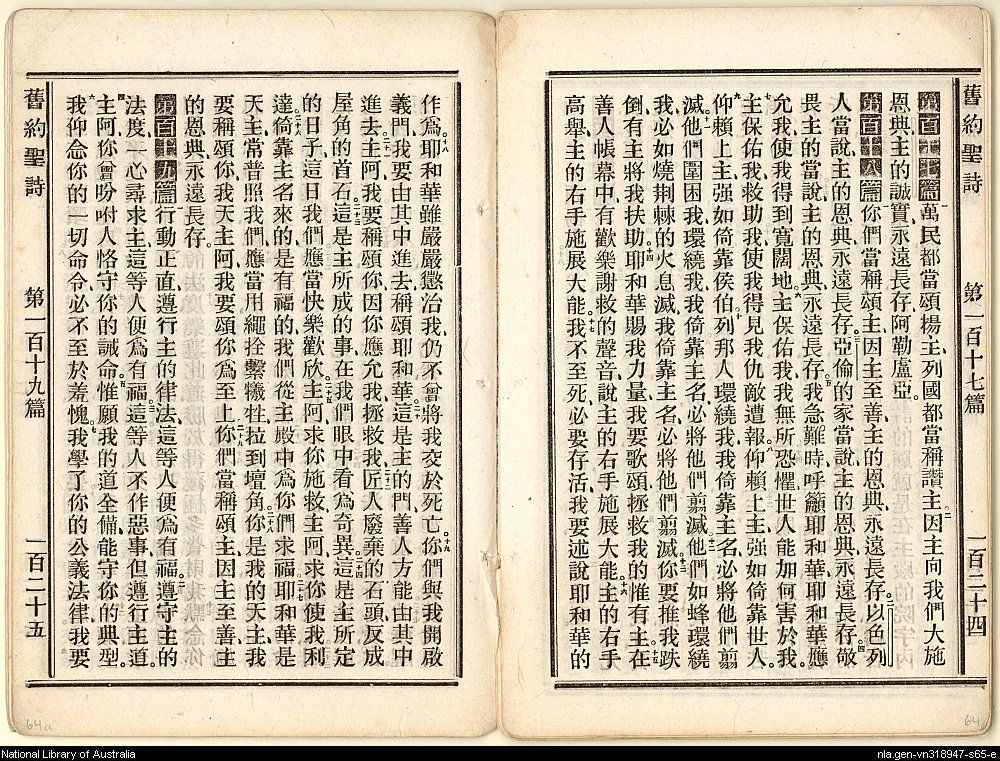 舊約聖詩 第一百十七篇 一百二十四
第百十七篇 一萬民都當頌揚主列國都當稱讚主二因主向我們大施
恩典主的誠實永遠長存阿勒盧亞
第百十八篇 一你們當稱頌主因主至善主的恩典永遠長存二以色列
人當說主的恩典永遠長存三亞倫的家當說主的恩典永遠長存四敬
畏主的當說主的恩典永遠長存五我急難時呼籲耶和華耶和華應
允我使我得到寬闊地六主保佑我我無所恐懼世人能加何害於我
七主保佑我救助我使我得見我仇敵遭報八仰賴上主強如倚靠世人
九仰賴上主強如倚靠侯伯十列邦人環繞我我倚靠主名必將他們翦
滅十一他們圍困我環繞我我倚靠主名必將他們翦滅十二他們如蜂環繞
我必如燒荆棘的火息滅我倚靠主名必將他們翦滅十三你要推我跌
倒有主將我扶助十四耶和華賜我力量我要歌頌拯救我的惟有主十五在
善人帳幕中有歡樂謝救的聲音說主的右手施展大能十六主的右手
高舉主的右手施展大能十七我不至死必要存活我要述說耶和華的
作爲十八耶和華雖嚴嚴懲治我仍不曾將我交於死亡十九你們與我開啟
義門我要由其中進去稱頌耶和華二十這是主的門善人方能由其中
進去二十一主阿我要稱頌你因你應允我拯救我二十二匠人廢棄的石頭反成
屋角的首石二十三這是主所成的事在我們眼中看爲奇異二十四這是主所定
的日子這日我們應當快樂歡欣二十五主阿求你施救主阿求你使我利
達二十六倚靠主名來的是有福的我們從主殿中爲你們求福二十七耶和華是
天主常普照我們應當用繩拴繫犧牲拉到壇角二十八你是我的天主我
要稱頌你我天主阿我要頌你爲至上二十九你們當稱頌主因主至善主
的恩典永遠長存
第百十九篇 一行動正直遵行主的律法這等人便爲有福二遵守主的
法度一心尋求主這等人便爲有福三這等人不作惡事但遵行主道
四主阿你曾吩咐人恪守你的誡命五惟願我的道全備能守你的典型
六我仰念你的一切命令必不至於羞愧七我學了你的公義法律我要
舊約聖詩 第一百十九篇 一百二十五
64a
64
National Library of Australia
nla.gen-vn318947-s65-e